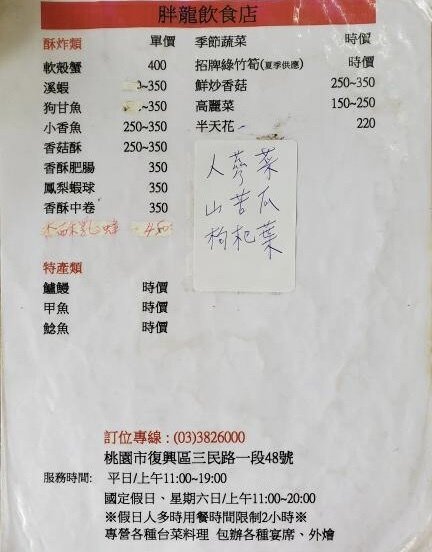 胖龍飲食店
酥炸類 單價
軟殼蟹 400
溪蝦 ~350
狗甘魚 ~350
小香魚 250~350
香菇酥 250~350
香酥肥腸 350
鳳梨蝦球 350
香酥中卷 350
香酥 450
特產類
鱸鰻 時價
甲魚 時價
鯰魚 時價
季節蔬菜 時價
招牌綠竹筍(夏季供應) 時價
鮮炒香菇 250~350
高麗菜 150~250
半天花 220
人蔘菜
山苦瓜
枸杞葉
訂位專線:(03)3826000
桃園市復興區三民路一段48號
服務時間: 平日/上午11:00~19:00
國定假日、星期六日/上午11:00~20:00
※假日人多時用餐時間限制2小時※
專營各種台菜料理 包辦各種宴席、外燴